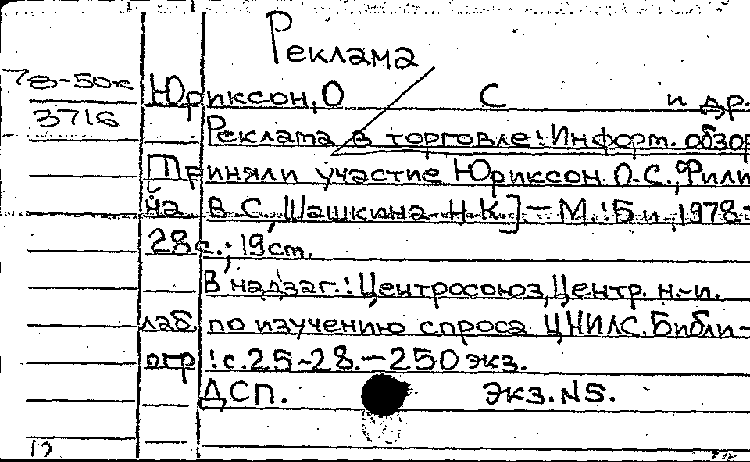 Реклама
78-50к
Юриксон, О С и др.
3716
Реклама в торговле: Информ. обзор
Приняли участие Юриксон О.С., Фили
йа В С, Шашкина Н.К.] - М.: Б и, 1978-
28с.; 19см.
В надзаг.: Центросоюз, Центр. н-и.
лаб. по изучению спроса ЦНИЛС. Библи-
огр: с.25-28. - 250 экз.
ДСП. Экз.N5.